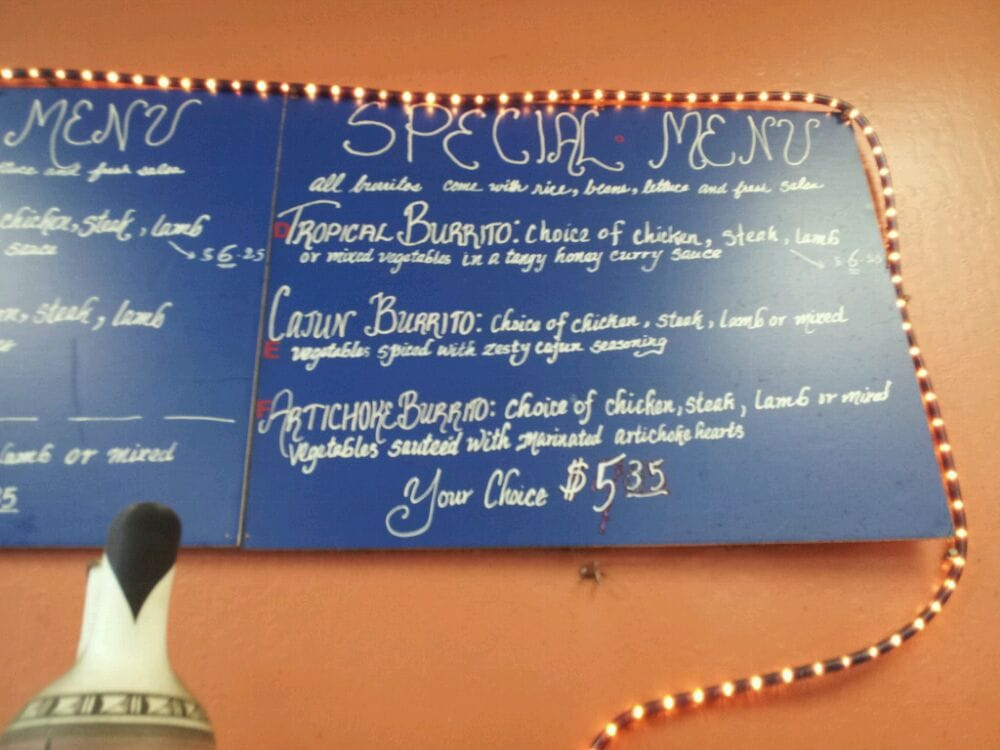 MENU
and fresh salsa
chicken, steak, lamb
sauce
$6.25
steak, lamb
lamb or mixed
SPECIAL MENU
all burritos come with rice, beans, lettuce and fresh salsa
D TROPICAL BURRITO: choice of chicken, steak, lamb
or mixed vegetables in a tangy honey curry sauce
$6.25
CAJUN BURRITO: choice of chicken, steak, lamb or mixed
E vegetables spiced with zesty cajun seasoning
F ARTICHOKE BURRITO: choice of chicken, steak, lamb or mixed
vegetables sauteed with marinated artichoke hearts
Your Choice $5.35